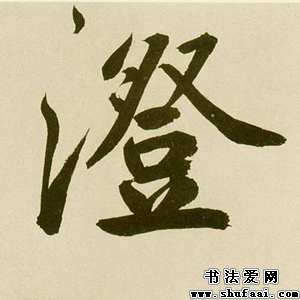 澄
书法爱网
www.shufaai.com